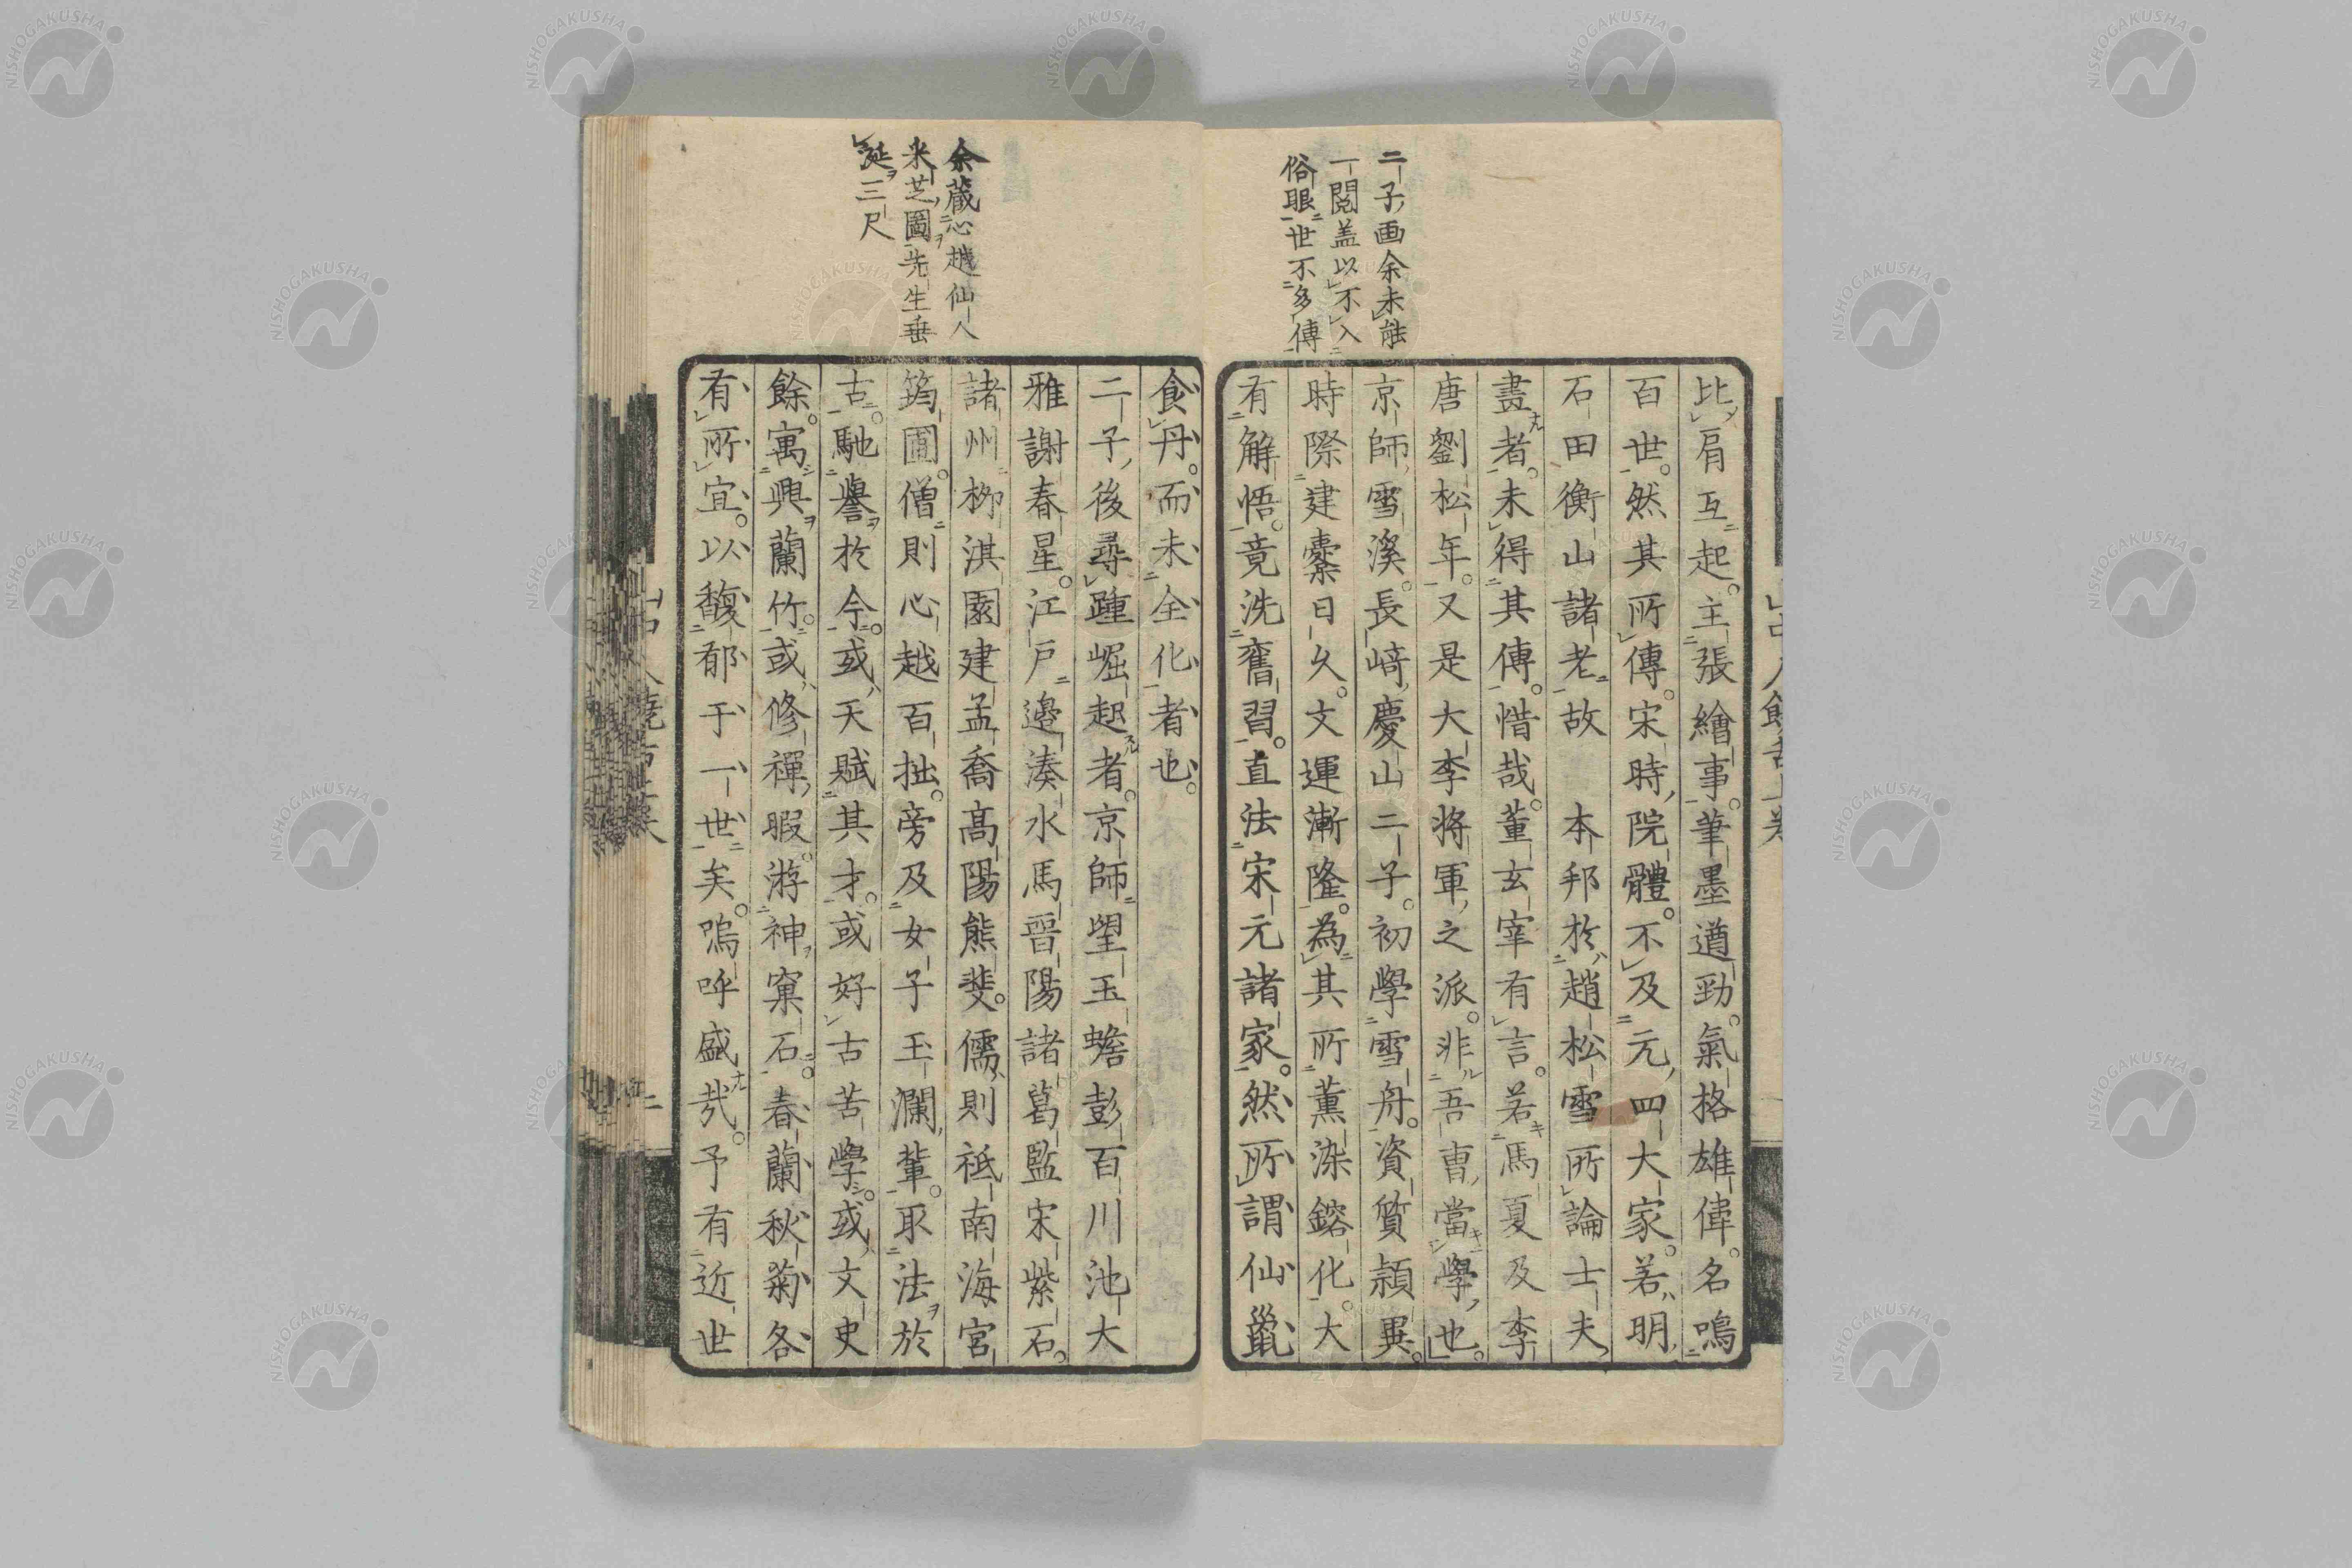 二子画余未能
一閲盖以不入
俗眼世不多傳
比肩互起。主張繪事。筆墨遒勁。氣格雄偉。名鳴
百世。然其所傳。宋時院體。不及元四大家。若明
石田衡山諸老。故　本邦於趙松雪所論士夫
畫者。未得其傳。惜哉。董玄宰有言。若馬夏及李
唐劉松年。又是大李將軍之派。非吾曹當學也。
京師雪溪。長﨑慶山二子。初學雪舟。資質頴異。
時際建櫜日久。文運漸隆。為其所薫染鎔化。大
有解悟。竟洗舊習。直法宋元諸家。然所謂仙鼠
余蔵心越仙人
米芝圖先生垂
涎三尺
食丹。而未全化者也。
二子後尋踵崛起者。京師望玉蟾彭百川池大
雅謝春星。江戸邉湊水馬晉陽諸葛監宋紫石。
諸州栁淇園建孟喬髙陽熊斐。儒則祗南海宮
筠圃。僧則心越百拙。旁及女子玉瀾輩。取法於
古。馳譽於今。或天賦其才。或好古苦學。或文史
餘。寓興蘭竹。或修禪暇。游神窠石。春蘭秋菊各
有所宜。以馥郁于一世矣。嗚呼盛哉。予有近世